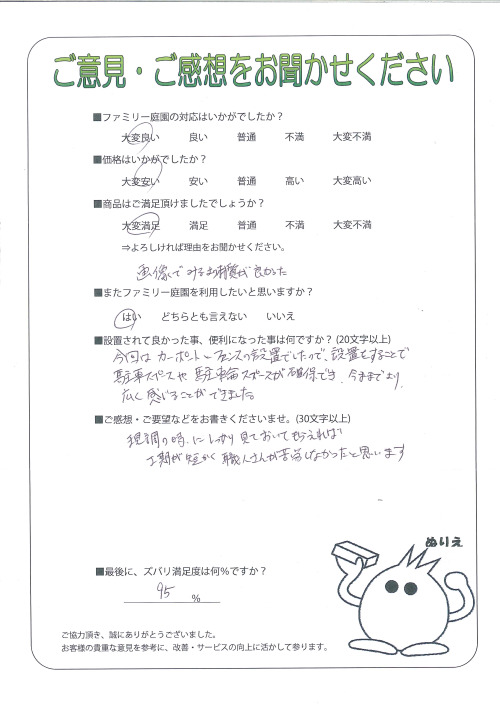 ご意見・ご感想をお聞かせください
■ファミリー庭園の対応はいかがでしたか？
大変良い 良い 普通 不満 大変不満
■価格はいかがでしたか？
大変安い 安い 普通 高い 大変高い
■商品はご満足頂けましたでしょうか？
大変満足 満足 普通 不満 大変不満
⇒よろしければ理由をお聞かせください。
画像でみるより質が良かった
■またファミリー庭園を利用したいと思いますか？
はい どちらとも言えない いいえ
■設置されて良かった事、便利になった事は何ですか？(20文字以上)
今回は カーポートとフェンスの設置でしたので、設置をすることで
駐車スペースや 駐車輪スペースが確保でき、今までより
広く感じることができました。
■ご感想・ご要望などをお書きくださいませ。(30文字以上)
現調の時、にしっかり見ておいてもらえれば
工期が短かく 職人さんが苦労しなかったと思います
ぬりえ
■最後に、ズバリ満足度は何％ですか？
95 %
ご協力頂き、誠にありがとうございました。
お客様の貴重な意見を参考に、改善・サービスの向上に活かして参ります。